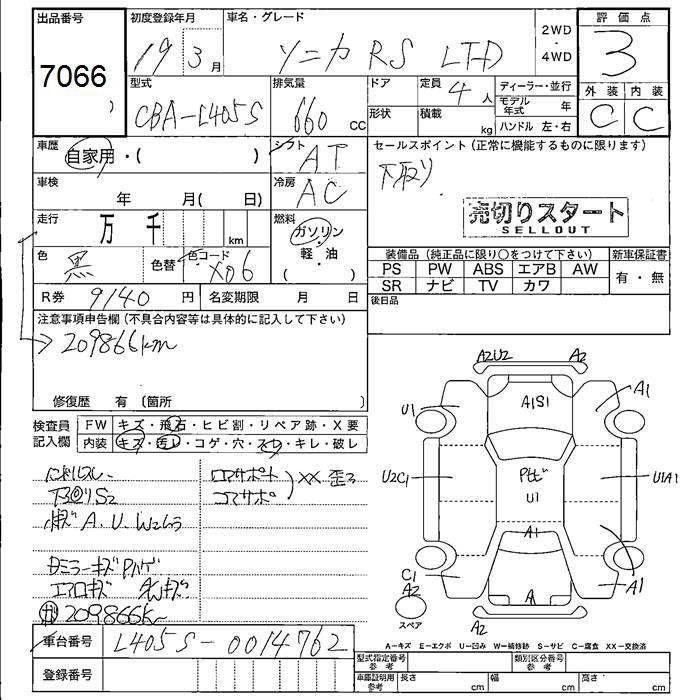 出品番号 初度登録年月 車名・グレード 2WD・4WD 評価点
7066 19 3月 ソニカ RS LTD 3
型式 排気量 ドア 定員 4人 ディーラー・並行 外装 内装
CBA-L405S 660 cc 形状 積載 kg モデル年式 年 C C
ハンドル 左・右
車歴 自家用・( ) シフト AT セールスポイント(正常に機能するものに限ります)
車検 年 月( 日) 冷房 AC 下取り
走行 万 千 km 燃料 ガソリン・軽・油 売切りスタート
SELLOUT
色 黒 色替 色コード X06 装備品(純正品に限り○をつけて下さい) 新車保証書
PS PW ABS エアB AW 有・無
SR ナビ TV カワ
R券 9140 円 名変期限 月 日 後日品
注意事項申告欄(不具合内容等は具体的に記入して下さい)
209866km
修復歴 有 〔箇所 〕
検査員記入欄 FW キズ・飛石・ヒビ割・リペア跡・X要
内装 キズ・汚レ・コゲ・穴・スレ・キレ・破レ
コアサポート
コアサポ XX 歪ミ
S2
A.U.W2
ミラーキズ
エアロキズ
209866K
A2U2 A2
A1S1 A1
U1
U2C1 U1 U1A1
A1
C1 A2 A A1
スペア A2
A-キズ E-エクボ U-凹み W-補修跡 S-サビ C-腐食 XX-交換済
車台番号 L405S-0014762
型式指定番号 参考 類別区分番号 参考
登録番号 車庫証明用 参考 長さ cm 幅 cm 高さ cm